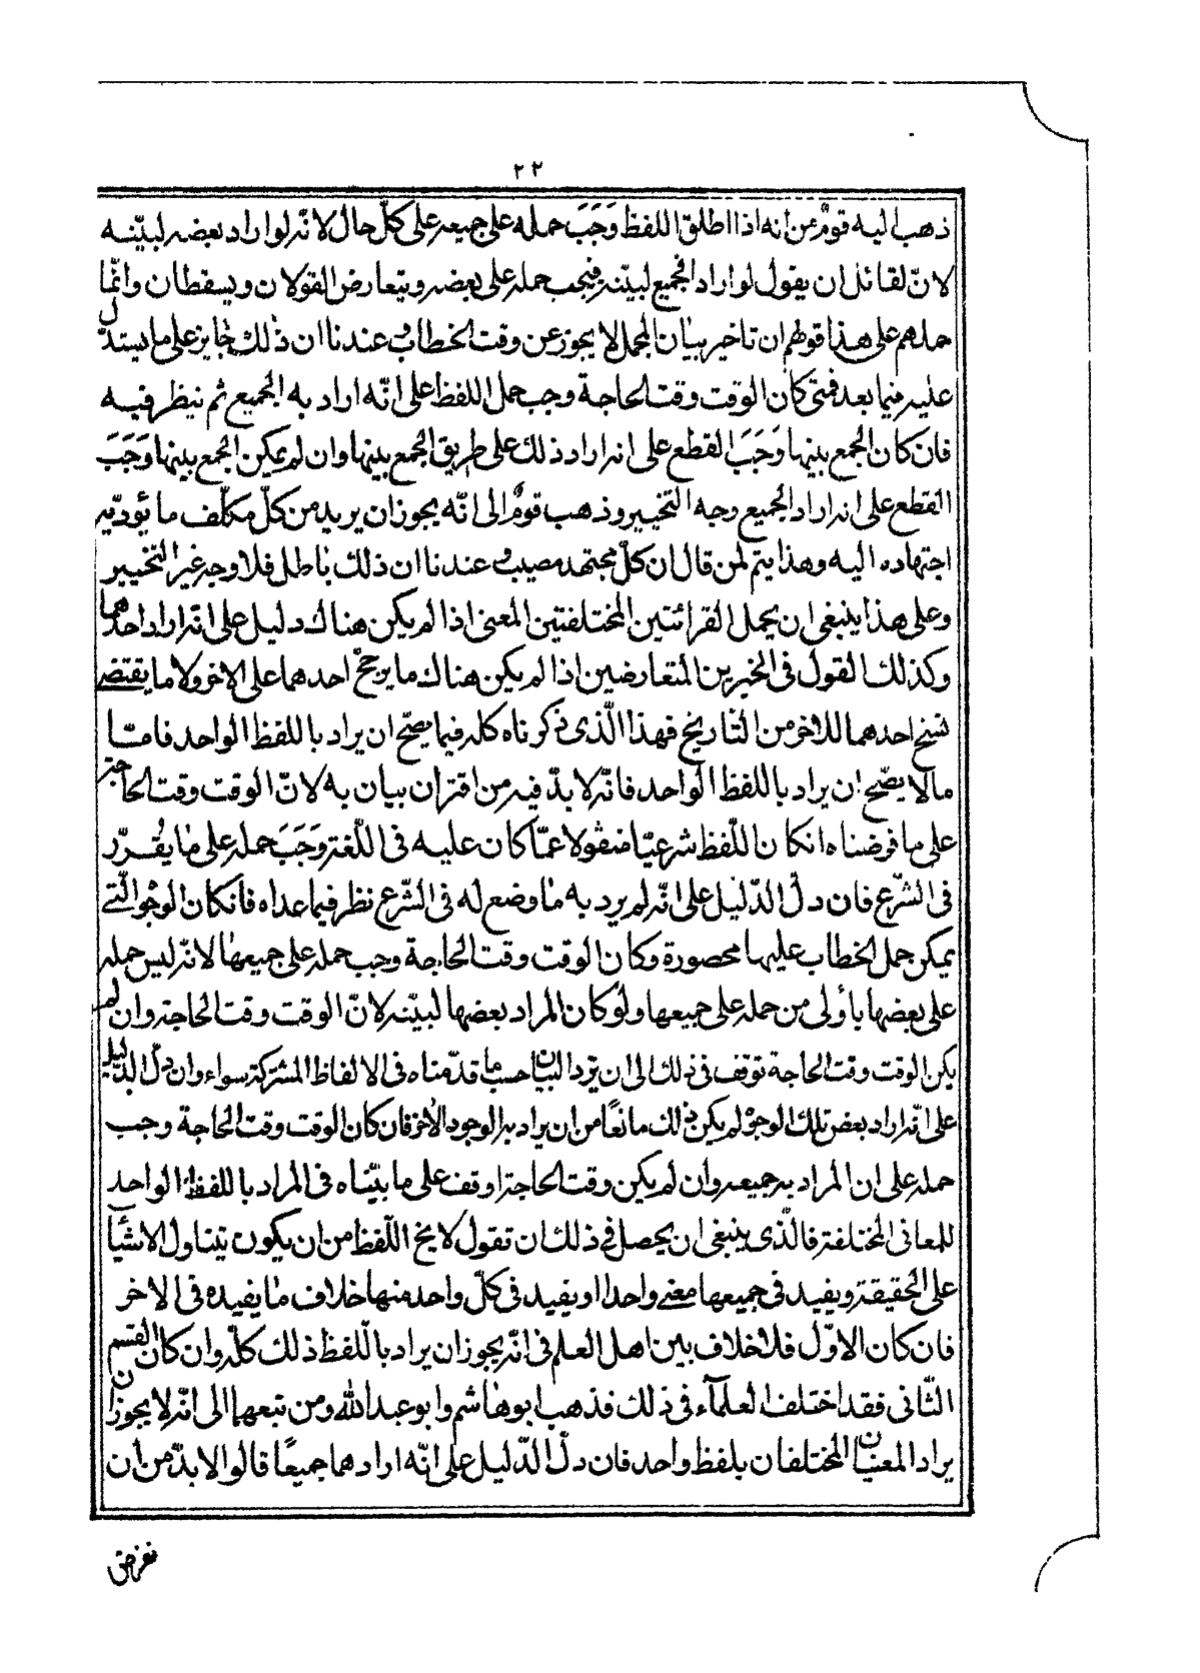 ٢٢
ذهب اليه قومٌ من انه اذا اطلق اللفظ وَجَبَ حمله على جميعه على كلّ حال لانّه لو اراد بعضه لبيّنه
لانّ لقائل ان يقول لو اراد الجميع لبيّنه فيجب حمله على بعضه ويتعارض القولان ويسقطان وانّما
حملهم على هذا قولهم ان تاخير بيان المجمل لا يجوز عن وقت الخطاب وعندنا ان ذلك جايز على ما يستدلّ
عليه فيما بعد فمتى كان الوقت وقت الحاجة وجب حمل اللفظ على انّه اراد به الجميع ثم ينظر فيه
فان كان الجمع بينها وَجَبَ القطع على انه اراد ذلك على طريق الجمع بينها وان لم يمكن الجمع بينها وَجَبَ
القطع على انه اراد الجميع وجه التخيير وذهب قومٌ الى انّه يجوز ان يريد من كلّ مكلّف ما يؤدّيه
اجتهاده اليه وهذا يتم لمن قال ان كلّ مجتهد مصيب وعندنا ان ذلك باطل فلا وجه غير التخيير
وعلى هذا ينبغى ان يحمل القرائتين المختلفتين المعنى اذا لم يكن هناك دليل على انّه اراد احدهما
وكذلك القول فى الخبرين المتعارضين اذا لم يكن هناك ما يرجّح احدهما على الاخر ولا ما يقتضى
نسخ احدهما للاخر من التاريخ فهذا الّذى ذكرناه كله فيما يصّح ان يراد باللفظ الواحد فامّا
مالا يصّح ان يراد باللفظ الواحد فانّه لا بدّ فيه من اقتران بيان به لانّ الوقت وقت الحاجة
على ما فرضناه انكان اللّفظ شرعيّا منقولا عمّا كان عليه فى اللّغة وَجَبَ حمله على ما يُقرّر
فى الشّرع فان دلّ الدّليل على انّه لم يرد به ما وضع له فى الشّرع نظر فيما عداه فانكان الوجوْ الّتى
يمكن حمل الخطاب عليها محصورة وكان الوقت وقت الحاجة وجب حمله على جميعها لانّه ليس حمله
على بعضها بأولى من حمله على جميعها ولو كان المراد بعضها لبيّنه لانّ الوقت وقت الحاجة وان لم
يكن الوقت وقت الحاجة توقف فى ذلك الى ان يرد البيان حسب ما قدّمناه فى الالفاظ المشتركة سواء وان دلّ الدّليل
على انّه اراد بعض تلك الوجوْ لم يكن ذلك مانعًا من ان يراد به الوجوه الأخر فان كان الوقت وقت الحاجة وجب
حمله على ان المراد به جميعه وان لم يكن وقت الحاجة وقف على ما بيّناه فى المراد باللفظ الواحد
للمعانى المختلفة فالّذى ينبغى ان يحصل فى ذلك ان تقول لا يخ اللّفظ من ان يكون يتناول الاشياء
على الحقيقة ويفيد فى جميعها معنى واحدا او يفيد فى كلّ واحد منها خلاف ما يفيده فى الاخر
فان كان الاوّل فلا خلاف بين اهل العلم فى انّه يجوز ان يراد باللّفظ ذلك كلّه وان كان القسم
الثّانى فقد اختلف العلمآء فى ذلك فذهب ابو هاشم وابو عبد الله ومن تبعهما الى انّه لا يجوز ان
يراد المعنيان المختلفان بلفظ واحد فان دلّ الدّليل على انّه ارادهما جميعًا قالوا لا بدّ من ان
نفرض